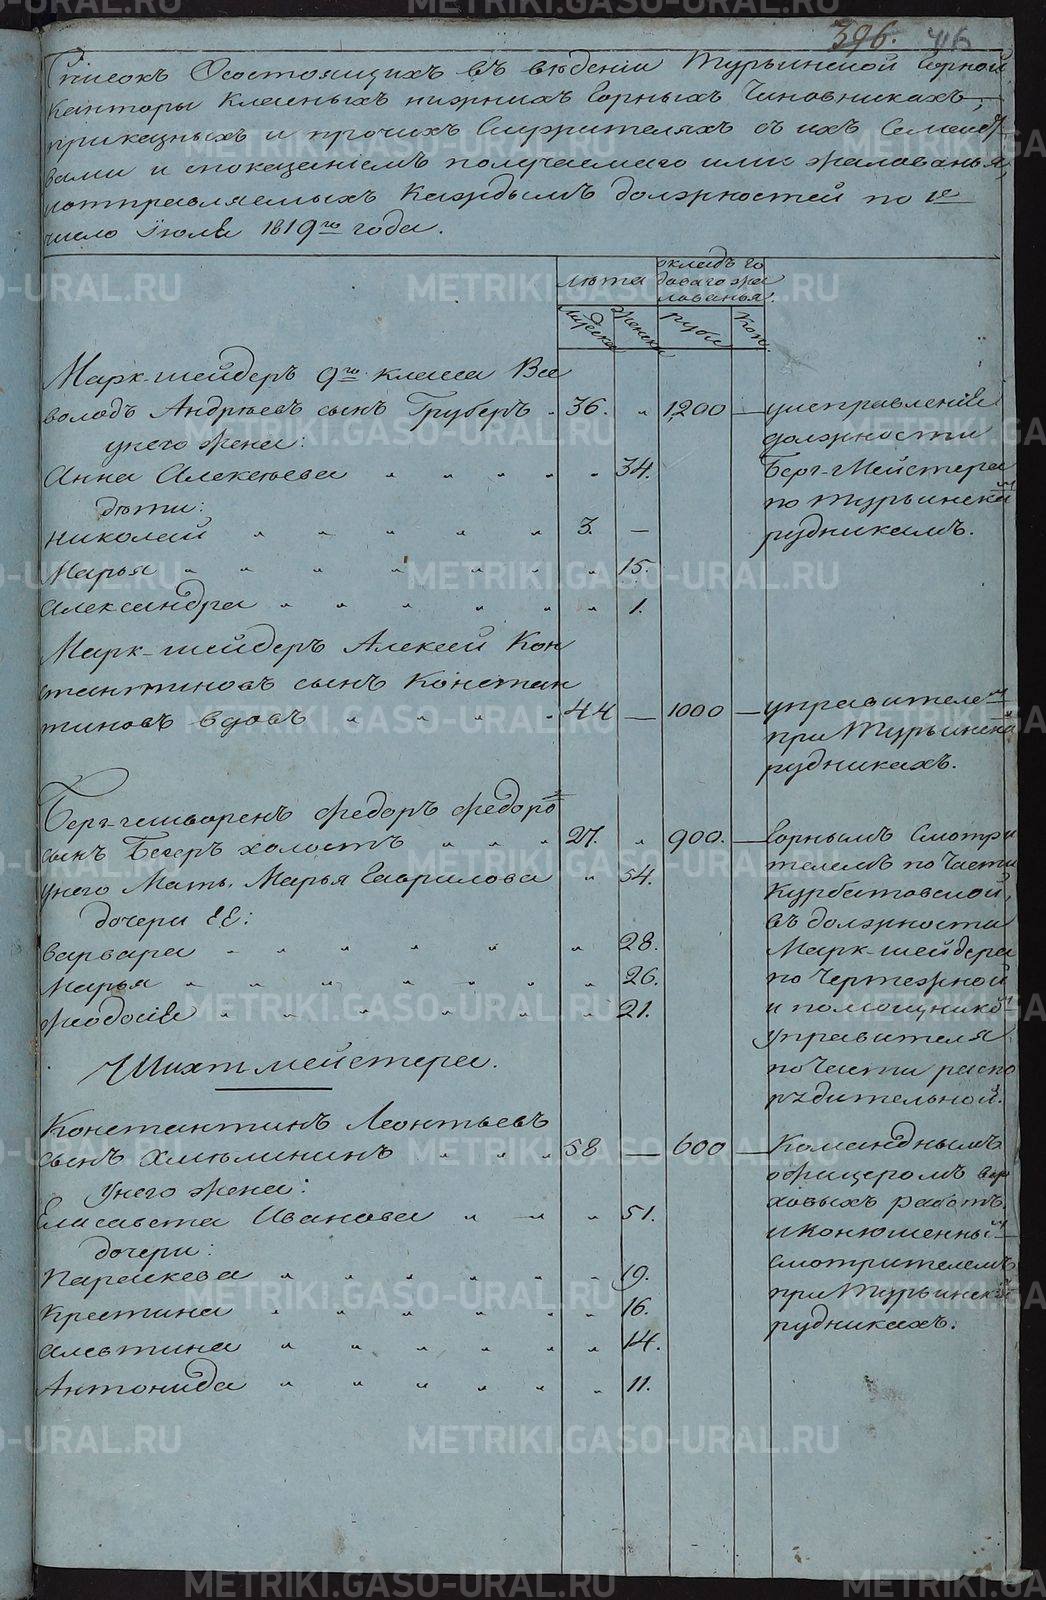 396.
Списокъ О состоящихъ въ вѣденіи Турьинской Горной
Канторы Класныхъ нижнихъ Горныхъ Чиновникахъ,
приказныхъ и прочихъ Служителяхъ съ ихъ Семейс
вами и спокезаніемъ получаемаго ими жалованья,
иотправляемыхъ Каждымъ должностей по 1е
число Іюля 1819го года.
лѣта
окладъ го
доваго жа
лованья.
мужеска
женска
рубли
коп.
Марк-шейдеръ 9го класса Все
володъ Андрѣевъ сынъ Груберъ 36. „ 1,200 — уисправленія
должности
Берг-Мейстера
по Турьинскимъ
рудникамъ.
унего жена:
Анна Алексѣева „ „ „ „ „ 34.
дѣти:
Николай „ „ „ „ „ 3. —
Марья „ „ „ „ „ „ „ 15.
Александра „ „ „ „ „ „ 1.
Марк-шейдеръ Алексѣй Кон
стантиновъ сынъ Констан
тиновъ вдовъ „ „ „ „ 44 — 1000 — управителемъ
при Турьинскихъ
рудникахъ.
Берг-гешворенъ Федоръ Федоро
сынъ Бегеръ холостъ „ „ „ 27. „ 900. — Горнымъ Смотри
телемъ по Части
Курбатовской,
въ должности
Марк-шейдера
по Чертежной
и помощникомъ
Управителя
по Части распо
рѣдительной.
унего Мать, Марья Гаврилова „ 54.
дочери ЕЕ:
Варвара „ „ „ „ „ „ 28.
Марья „ „ „ „ „ „ „ 26.
Феодосія „ „ „ „ „ „ „ 21.
Шихтмейстера.
Константинъ Леонтьевъ
сынъ Хмѣлининъ „ „ „ 58 — 600 — Команднымъ
офицеромъ вер
ховыхъ работъ,
и конюшеннымъ
смотрителемъ
при Турьинскихъ
рудникахъ.
Унего жена:
Елисавета Иванова „ „ „ 51.
дочери:
Параскева „ „ „ „ „ „ 19.
Крестина „ „ „ „ „ „ 16.
Алевтина „ „ „ „ „ „ 14.
Антонида „ „ „ „ „ „ 11.
METRIKI.GASO-URAL.RU